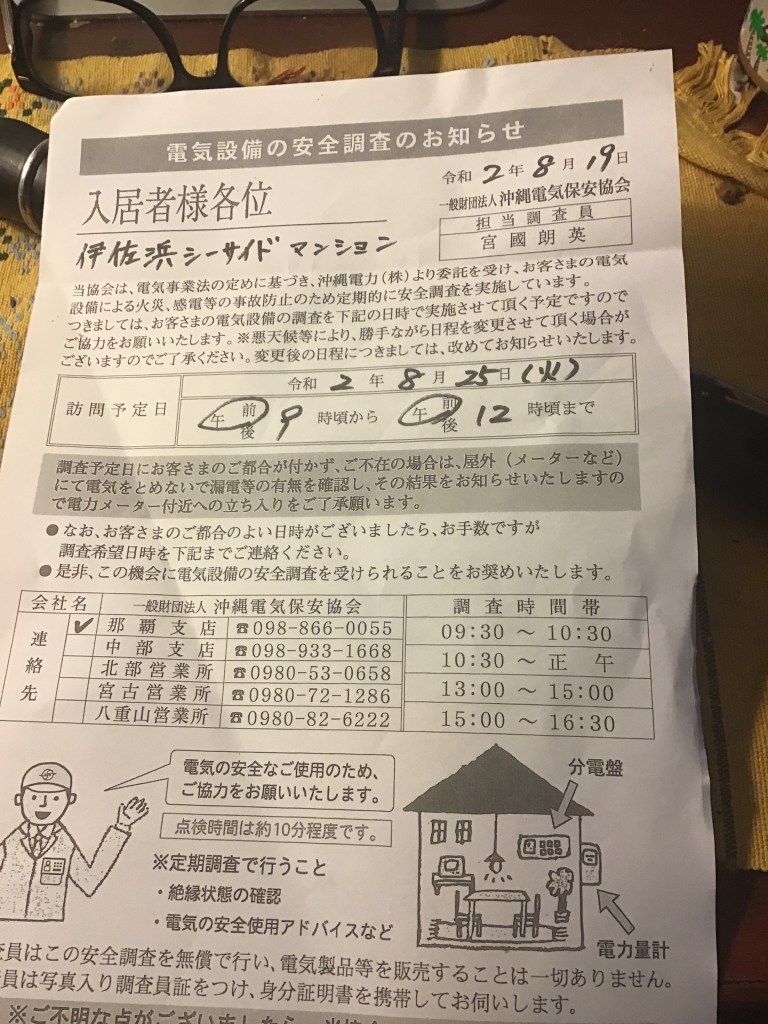 電気設備の安全調査のお知らせ
令和 2 年 8 月 19 日
入居者様各位
一般財団法人 沖縄電気保安協会
担当調査員
宮國朗英
伊佐浜シーサイドマンション
当協会は、電気事業法の定めに基づき、沖縄電力(株)より委託を受け、お客さまの電気
設備による火災、感電等の事故防止のため定期的に安全調査を実施しています。
つきましては、お客さまの電気設備の調査を下記の日時で実施させて頂く予定ですので
ご協力をお願いいたします。※悪天候等により、勝手ながら日程を変更させて頂く場合が
ございますのでご了承ください。変更後の日程につきましては、改めてお知らせいたします。
訪問予定日
令和 2 年 8 月 25 日(火)
午 前 後 9 時頃から 午 前 後 12 時頃まで
調査予定日にお客さまのご都合が付かず、ご不在の場合は、屋外(メーターなど)
にて電気をとめないで漏電等の有無を確認し、その結果をお知らせいたしますの
で電力メーター付近への立ち入りをご了承願います。
● なお、お客さまのご都合のよい日時がございましたら、お手数ですが
調査希望日時を下記までご連絡ください。
● 是非、この機会に電気設備の安全調査を受けられることをお奨めいたします。
会社名 一般財団法人 沖縄電気保安協会 調査時間帯
連絡先
✓ 那覇支店 ☎098-866-0055 09:30 ~ 10:30
中部支店 ☎098-933-1668 10:30 ~ 正午
北部営業所 ☎0980-53-0658
宮古営業所 ☎0980-72-1286 13:00 ~ 15:00
八重山営業所 ☎0980-82-6222 15:00 ~ 16:30
電気の安全なご使用のため、
ご協力をお願いいたします。
点検時間は約10分程度です。
※定期調査で行うこと
・絶縁状態の確認
・電気の安全使用アドバイスなど
分電盤
電力量計
査員はこの安全調査を無償で行い、電気製品等を販売することは一切ありません。
員は写真入り調査員証をつけ、身分証明書を携帯してお伺いします。
※ご不明な点がございましたら